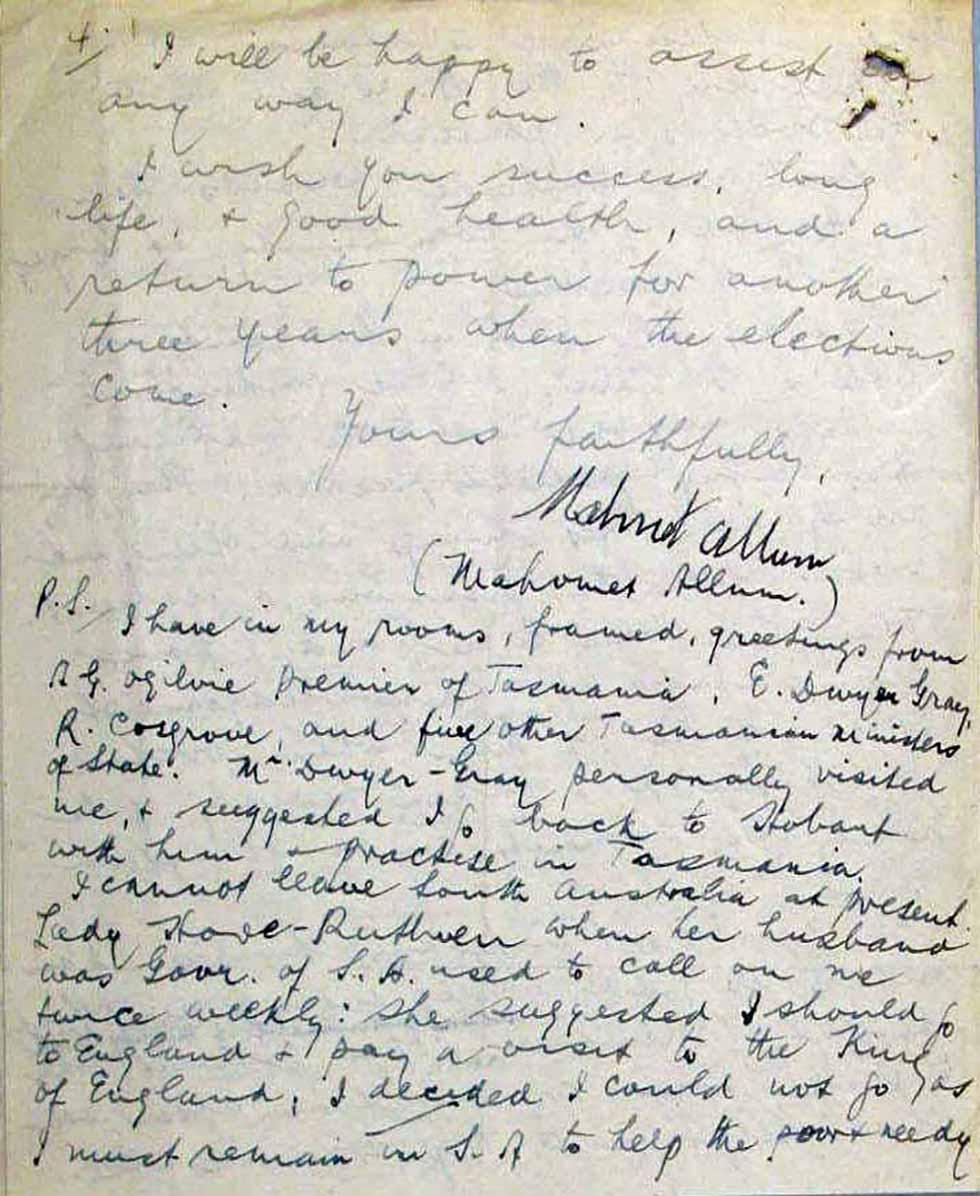 4/ I will be happy to assist in
any way I can.
I wish you success, long
life, & good health, and a
return to power for another
three years when the elections
come.
Yours faithfully,
Mahomet Allum
(Mahomet Allum.)
P.S. I have in my rooms, framed, greetings from
A G. Ogilvie Premier of Tasmania, E. Dwyer Gray
R. Cosgrove, and five other Tasmanian Ministers
of State. Mr Dwyer-Gray personally visited
me, & suggested I go back to Hobart
with him & practise in Tasmania.
I cannot leave South Australia at present.
Lady Hore-Ruthven when her husband
was Govr. of S. A. used to call on me
twice weekly: she suggested I should go
to England & pay a visit to the King
of England; I decided I could not go as
I must remain in S. A to help the poor & needy